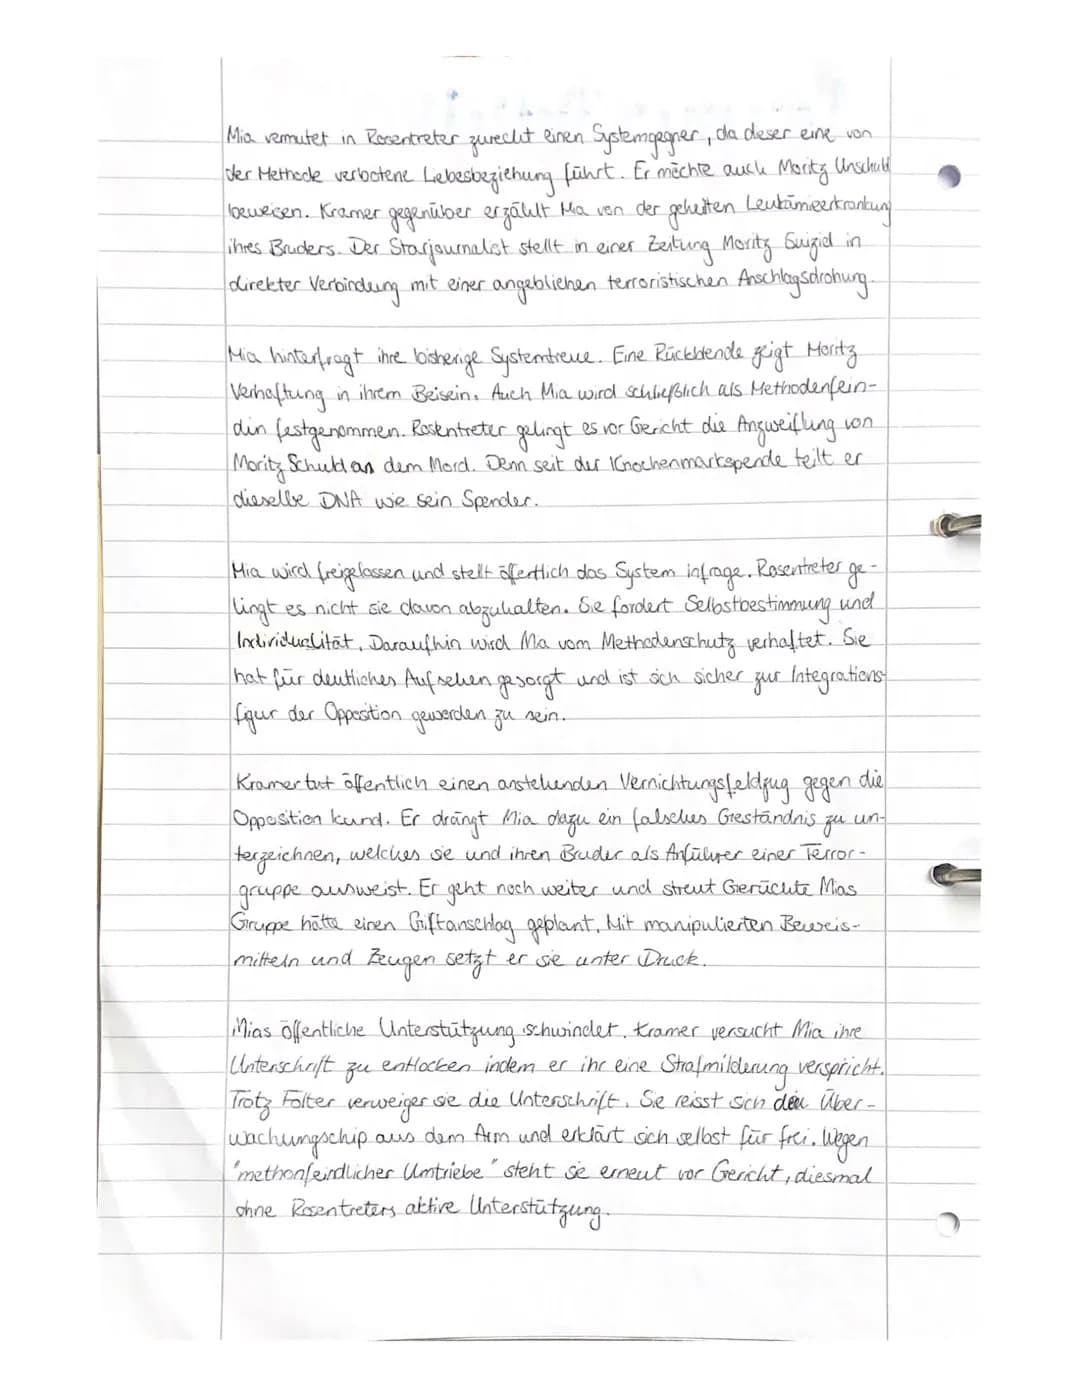 Mia vermutet in Rosentreter zurecht einen Systemgegner, da dieser eine von
der Methode verbotene Liebesbeziehung führt. Er möchte auch Moritz Unschuld
beweisen. Kramer gegenüber erzählt Mia von der geheilten Leukämieerkrankung
ihres Bruders. Der Starjournalist stellt in einer Zeitung Moritz Suizid in
direkter Verbindung mit einer angeblichen terroristischen Anschlagsdrohung.
Mia hinterfragt ihre bisherige Systemtreue. Eine Rückblende zeigt Moritz
Verhaftung in ihrem Beisein. Auch Mia wird schließlich als Methodenfein-
din festgenommen. Rosentreter gelingt es vor Gericht die Anzweiflung von
Moritz Schuld an dem Mord. Denn seit der Knochenmarkspende teilt er
dieselbe DNA wie sein Spender.
Mia wird freigelassen und stellt öffentlich das System infrage. Rosentreter ge-
lingt es nicht sie davon abzuhalten. Sie fordert Selbstbestimmung und
Individualität. Daraufhin wird Mia vom Methodenschutz verhaftet. Sie
hat für deutliches Aufsehen gesorgt und ist sich sicher zur Integrations-
figur der Opposition geworden zu sein.
Kramer tut öffentlich einen anstehenden Vernichtungsfeldzug gegen die
Opposition kund. Er drängt Mia dazu ein falsches Geständnis zu un-
terzeichnen, welches sie und ihren Bruder als Anführer einer Terror-
gruppe ausweist. Er geht noch weiter und streut Gerüchte Mias
Gruppe hätte einen Giftanschlag geplant. Mit manipulierten Beweis-
mitteln und Zeugen setzt er sie unter Druck.
Mias öffentliche Unterstützung schwindet. Kramer versucht Mia ihre
Unterschrift zu entlocken indem er ihr eine Strafmilderung verspricht.
Trotz Folter verweiger sie die Unterschrift. Sie reisst sich den Über-
wachungschip aus dem Arm und erklärt sich selbst für frei. Wegen
"methonfeindlicher Umtriebe" steht sie erneut vor Gericht, diesmal
ohne Rosentreters aktive Unterstützung.